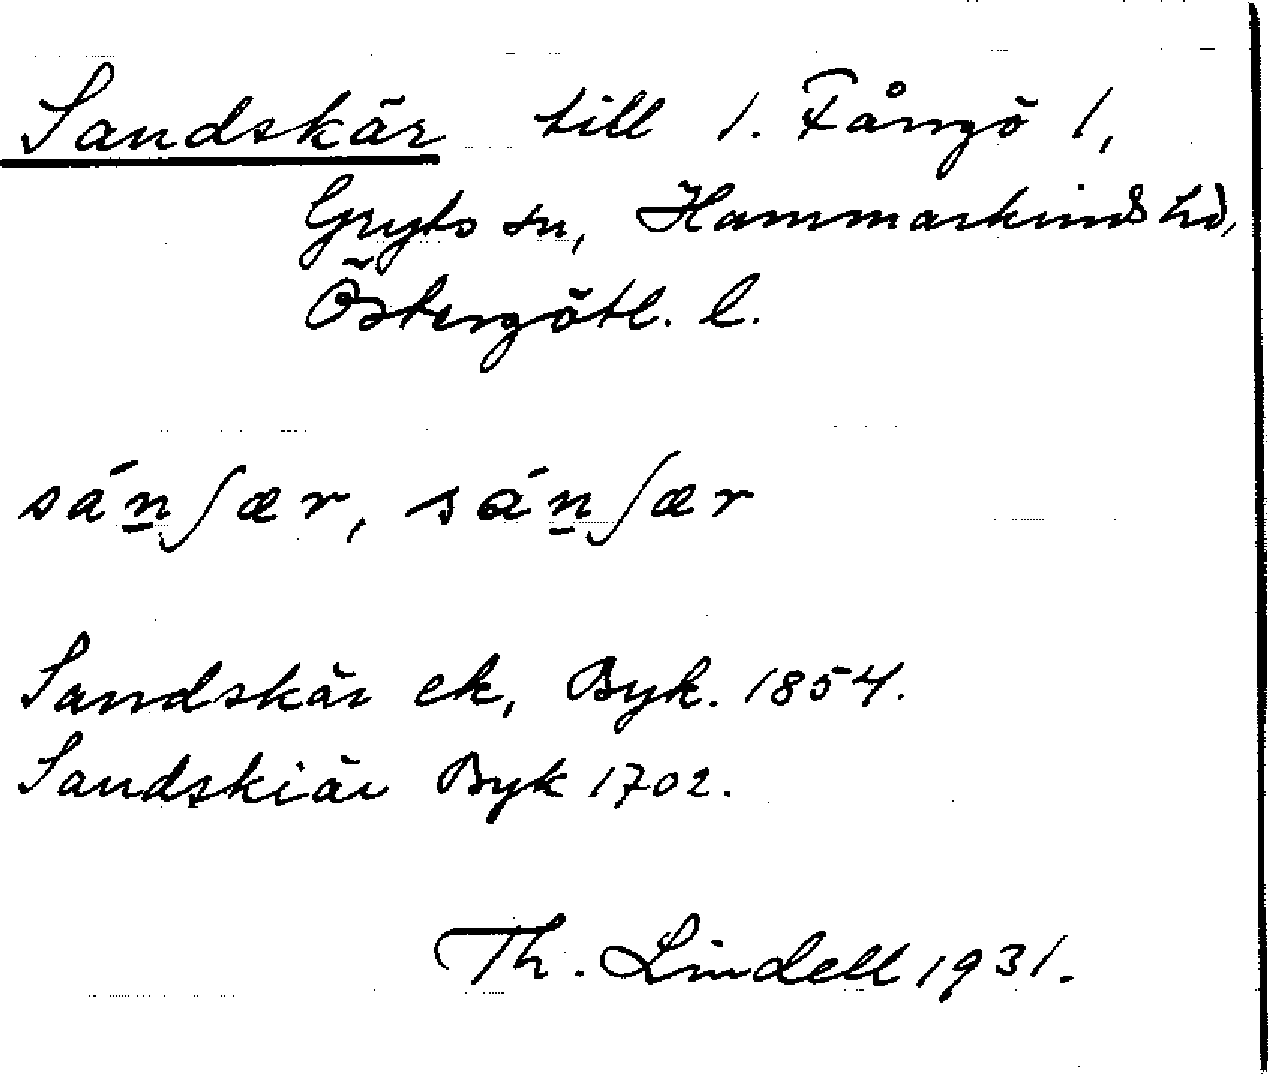 Sandskär till 1. Fångö 1,
Gryts sn, Hammarkinds hd,
Östergötl. l.
sánʃær, sánʃær
Sandskär ek, Byk. 1854.
Sandskiär Byk 1702.
Th. Lindell 1931.